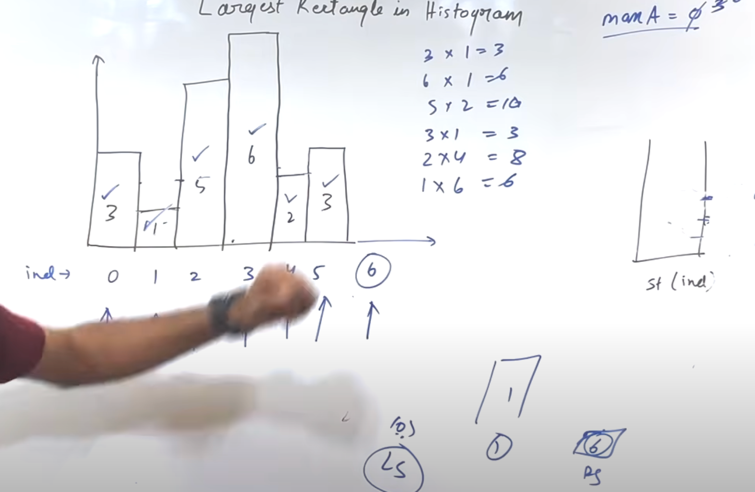 Largest Rectangle in Histogram
maxA = ø 3
3 x 1 = 3
6 x 1 = 6
5 x 2 = 10
3 x 1 = 3
2 x 4 = 8
1 x 6 = 6
3 1 5 6 2 3
ind→ 0 1 2 3 4 5 6
st (ind)
1
LS 1 6
RS